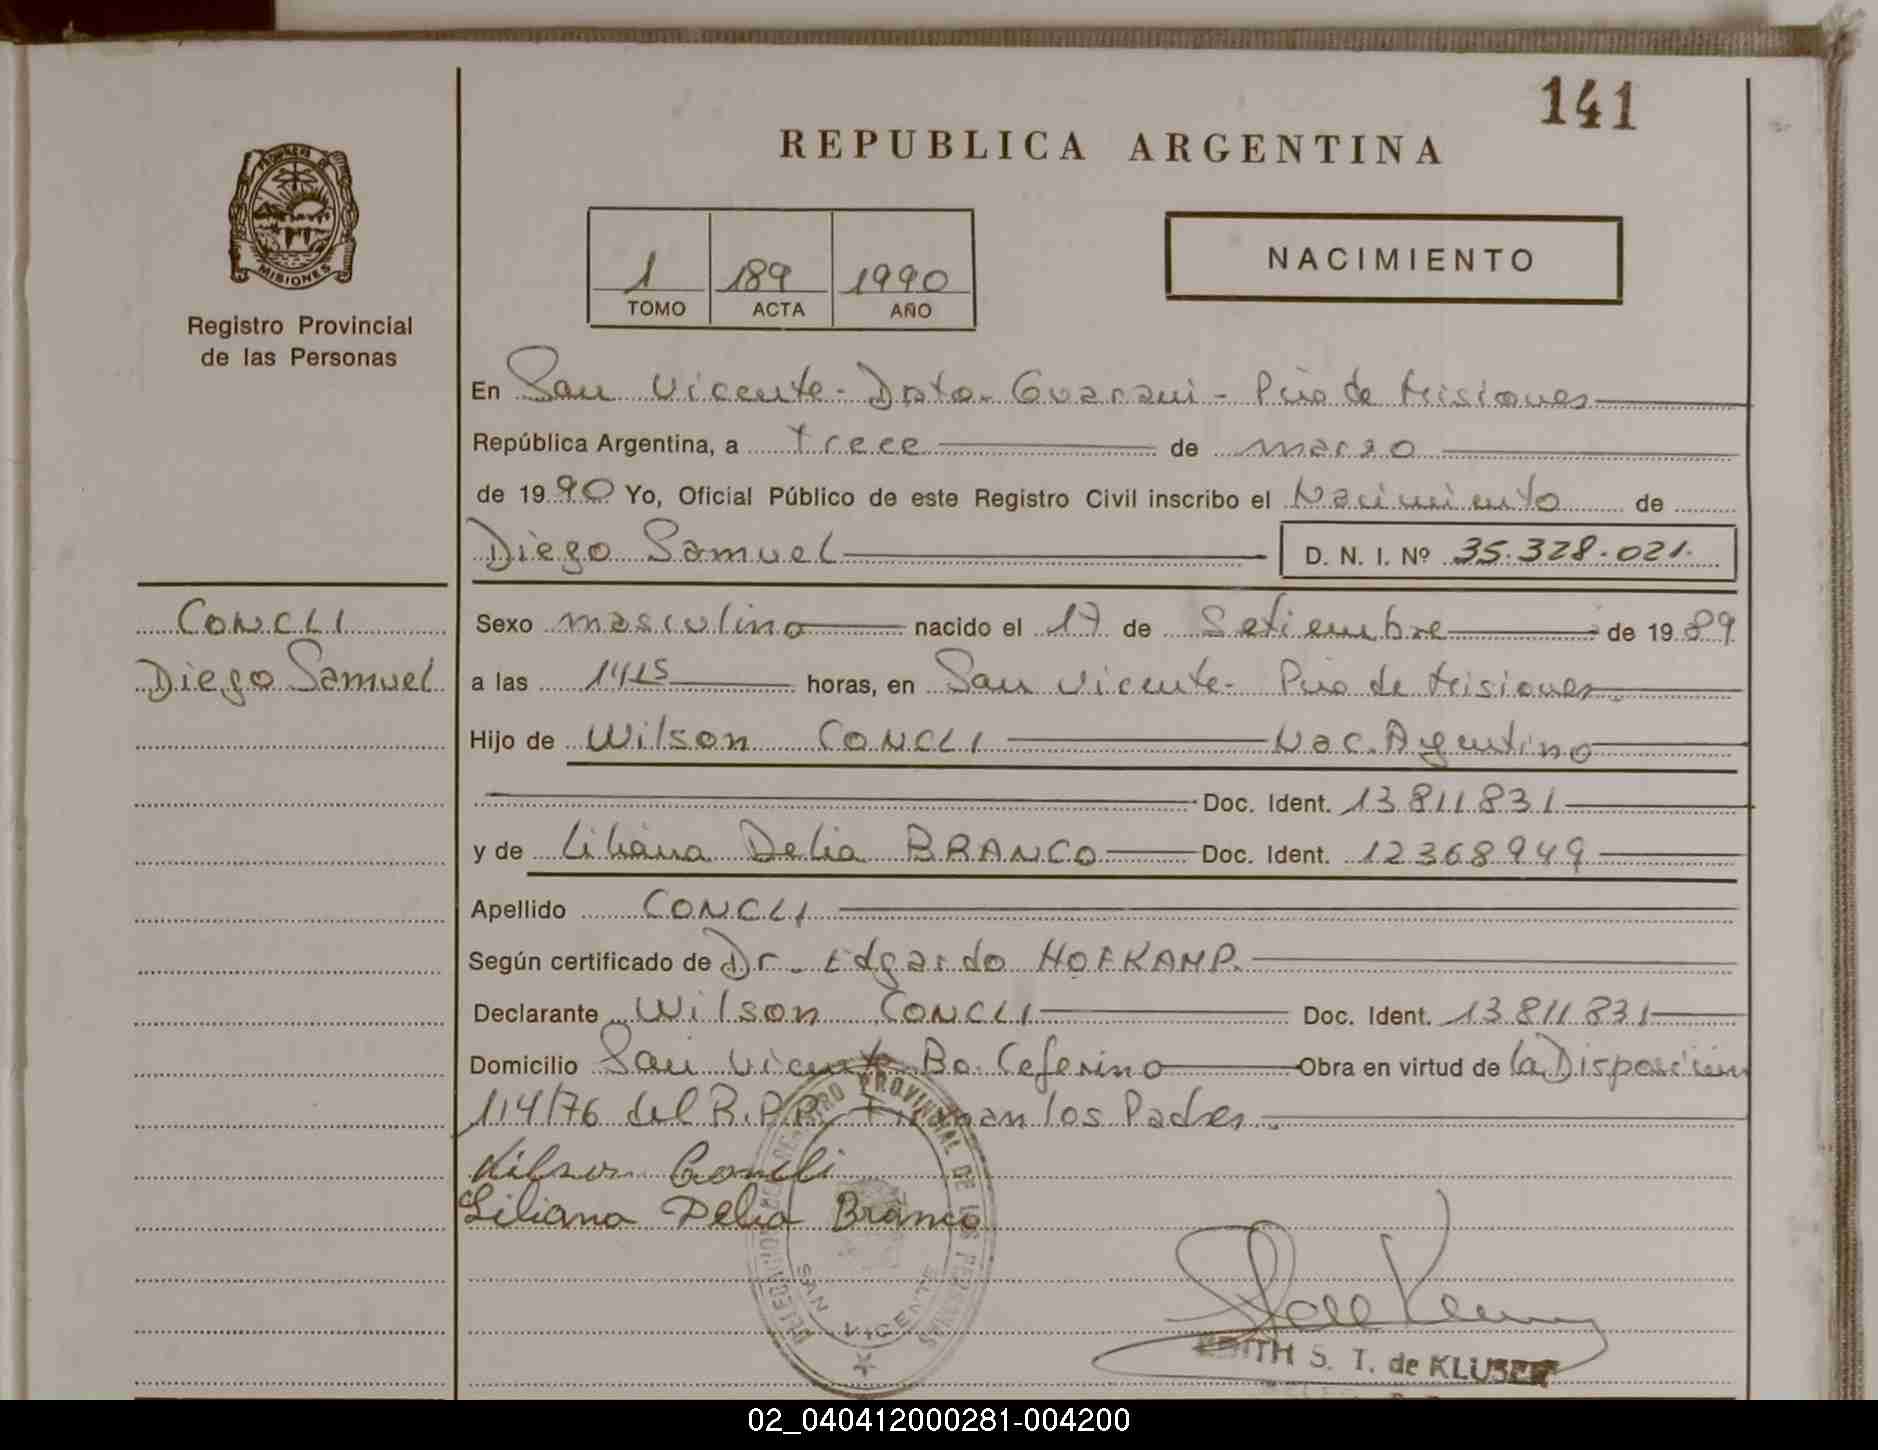 141
REPUBLICA ARGENTINA
PROVINCIA DE
MISIONES
Registro Provincial
de las Personas
1 189 1990
TOMO ACTA AÑO
NACIMIENTO
En San Vicente - Dpto. Guaraní - Pcia de Misiones
República Argentina, a trece de marzo
de 1990 Yo, Oficial Público de este Registro Civil inscribo el Nacimiento de
Diego Samuel D. N. I. Nº 35.328.021.
CONCLI
Diego Samuel
Sexo masculino nacido el 17 de Setiembre de 1989
a las 1415 horas, en San Vicente - Pcia de Misiones.
Hijo de Wilson CONCLI Nac. Argentino
Doc. Ident. 13811831
y de Liliana Delia BRANCO Doc. Ident. 12368949
Apellido CONCLI
Según certificado de Dr. Edgardo HOFKAMP.
Declarante Wilson CONCLI Doc. Ident. 13811831
Domicilio San Vicente Bo. Ceferino Obra en virtud de la Disposición
114/76 del R.P.P. Firman los Padres.
Wilson Concli
Liliana Delia Branco
DELEGACION REGISTRO PROVINCIAL DE LAS PERSONAS
SAN VICENTE
EDITH S. T. de KLUSER
02_040412000281-004200